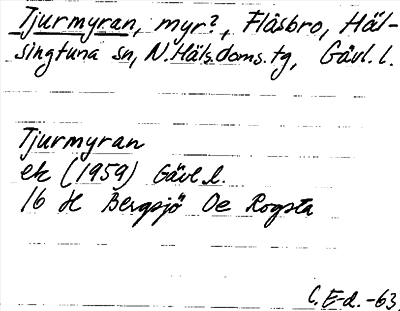 Tjurmyran, myr?, Flåsbro, Häl-
singtuna sn, N. Häls. doms. tg, Gävl. l.
Tjurmyran
ek (1959) Gävl. l.
16 H Bergsjö Oe Rogsta
C. E-d. -63.